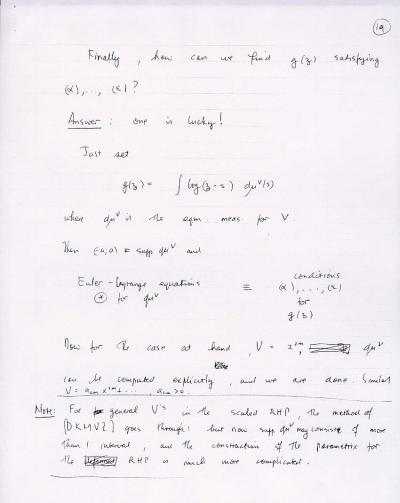 19
Finally, how can we find g(z) satisfying
(α), ..., (ε)?
Answer: one is lucky!
Just set
g(z) = ∫ log(z-s) dμᵛ(s)
where dμᵛ is the eqm. meas. for V
Then (-a,a) = supp dμᵛ and
Euler-Lagrange equations ≡ conditions
⊛ for dμᵛ (α), ..., (ε)
for
g(z)
Now for the case at hand, V = x²ᵐ, dμᵛ
can be computed explicitly, and we are done. Similar
V = a₂ₘ x²ᵐ + ..., a₂ₘ > 0.
Note: For general V's in the scaled RHP, the method of
[DKMVZ] goes through: but now supp dμᵛ may consist of more
than 1 interval, and the construction of the parametrix for
the RHP is much more complicated.